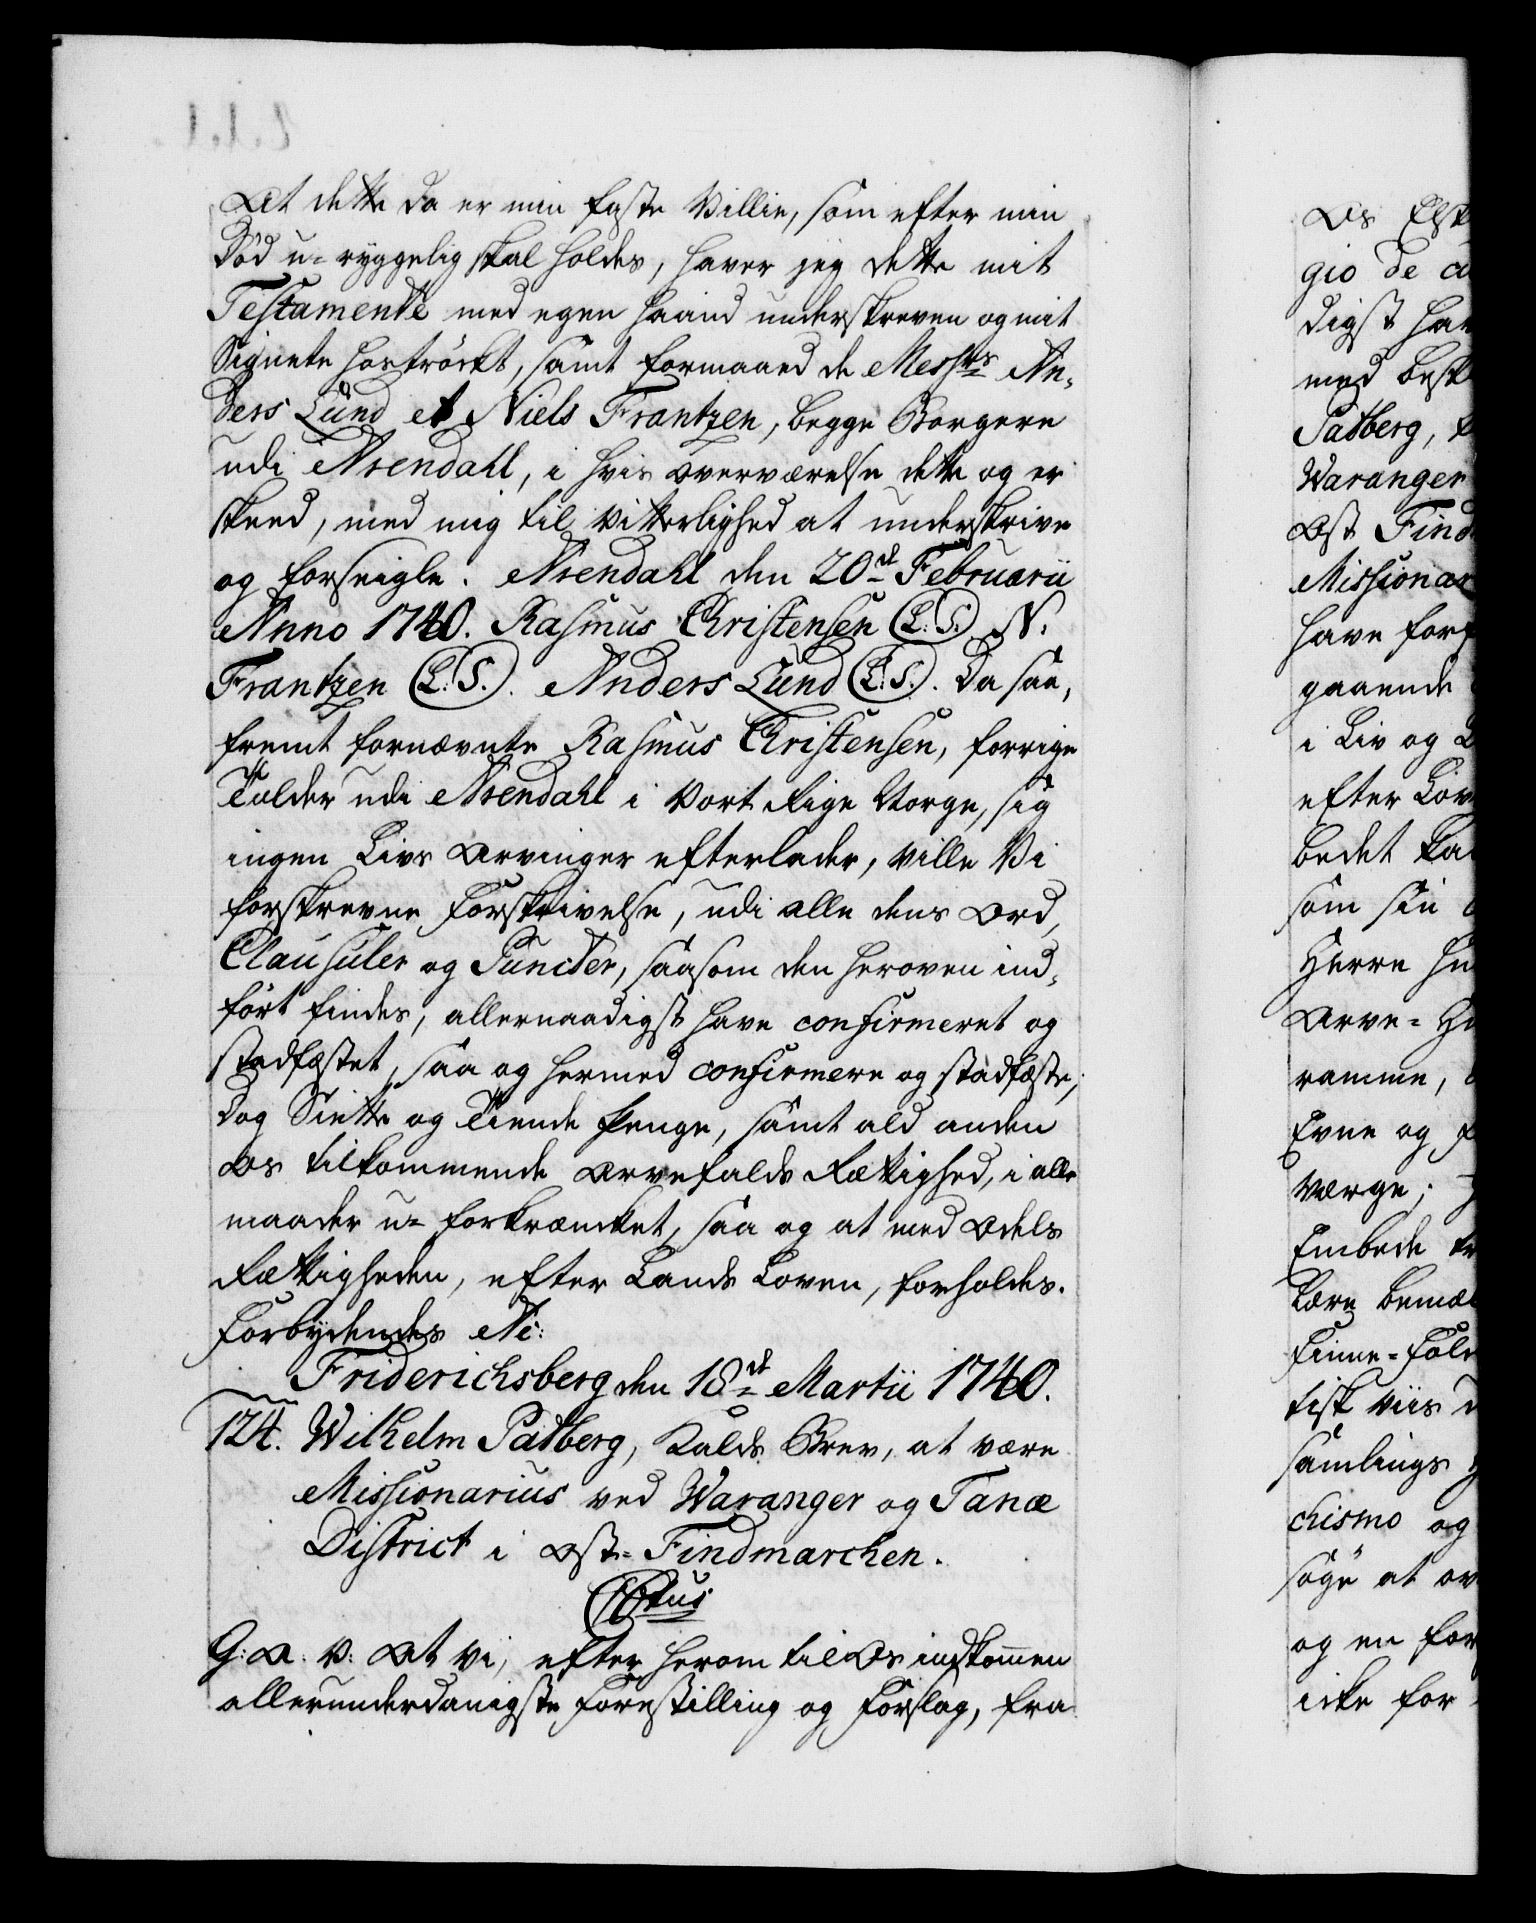 At dette da er min faste Villie, som efter min
Död u-ryggelig skal holdes, haver jeg dette mit
Testamente med egen Haand underskreven og mit
Signete hostrÿckt, samt formaaed de Messrs An-
ders Lund et Niels Frantzen, begge Borgere
udi Arendahl, i hvis Overværelse dette og er
skeed, med mig til Vitterlighed at underskrive
og forseigle. Arendahl den 20de Februarii
Anno 1740. Rasmus Christensen (L.S.) N.
Frantzen (L.S.). Anders Lund (L.S.). Da saa,
fremt fornævnte Rasmus Christensen, forrige
Tolder udi Arendahl i Vort Rige Norge, sig
ingen Livs Arvinger efterlader, ville Vi
forskrevne Forskrivelse, udi alle dens Ord,
Clausuler og Puncter, saasom den heroven ind-
fört findes, allernaadigst have confirmeret og
stadfæstet, saa og hermed confirmere og stadfæste;
Dog Siette og Tiende Penge, samt ald anden
Os tilkommende Arvefalds Rættighed, i alle
maader u-forkrænket, saa og at med Odels
Rættigheden, efter Lands Loven, forholdes.
Forbydendes Ac:
Friderichsberg den 18de Martii 1740.
124. Wilhelm Patberg, Kalds Brev, at være
Missionarius ved Waranger og Tanæ
District i Ost-Findmarchen.
CS6tus
G: A. V: At vi, efter herom til Os indkommen
allerunderdanigste Forestilling og Forslag, fra
Os Elsk
gio de cu
digst hav
med besk
Patberg,
Waranger
Ost Find
Missionar
have for
gaaende
i Liv og L
efter Lov
bedet
som sin
Herre
Arve-H
ramme,
Evne og F
Værge;
Embede
Lære bemæ
Finne-Fol
tisk viis
samlings
chismo og
söge at ov
og en for
icke for